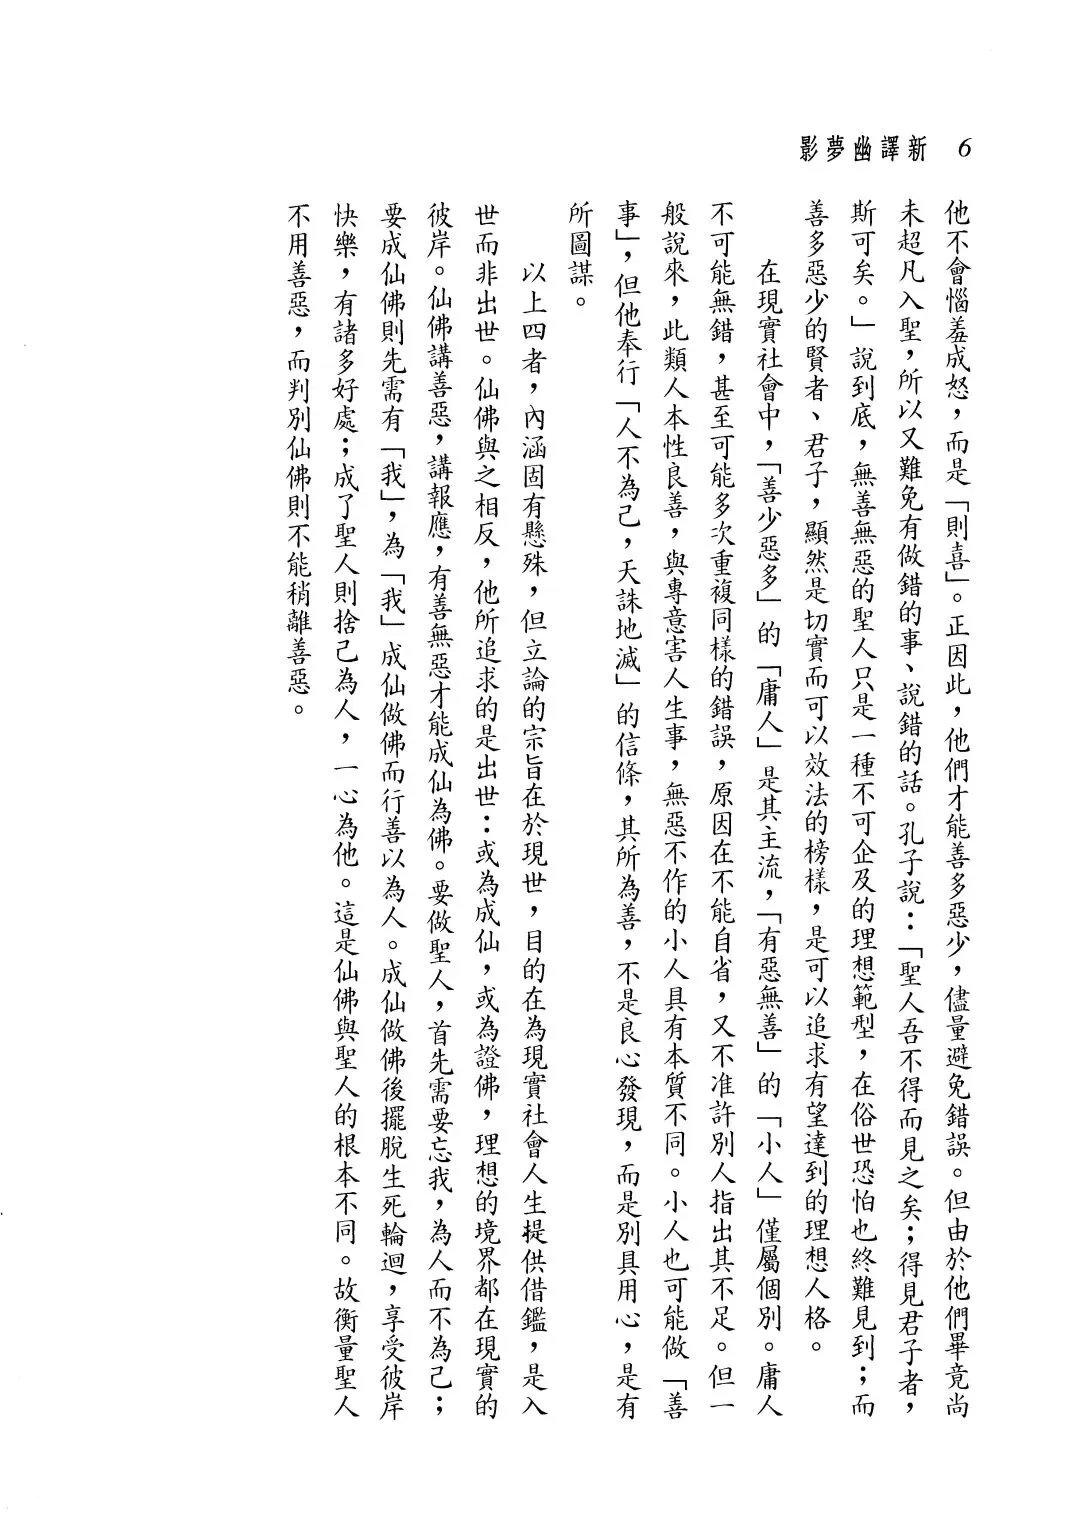 新譯幽夢影 6
他不會惱羞成怒，而是「則喜」。正因此，他們才能善多惡少，儘量避免錯誤。但由於他們畢竟尚
未超凡入聖，所以又難免有做錯的事、說錯的話。孔子說：「聖人吾不得而見之矣；得見君子者，
斯可矣。」說到底，無善無惡的聖人只是一種不可企及的理想範型，在俗世恐怕也終難見到；而
善多惡少的賢者、君子，顯然是切實而可以效法的榜樣，是可以追求有望達到的理想人格。
在現實社會中，「善少惡多」的「庸人」是其主流，「有惡無善」的「小人」僅屬個別。庸人
不可能無錯，甚至可能多次重複同樣的錯誤，原因在不能自省，又不准許別人指出其不足。但一
般說來，此類人本性良善，與專意害人生事，無惡不作的小人具有本質不同。小人也可能做「善
事」，但他奉行「人不為己，天誅地滅」的信條，其所為善，不是良心發現，而是別具用心，是有
所圖謀。
以上四者，內涵固有懸殊，但立論的宗旨在於現世，目的在為現實社會人生提供借鑑，是入
世而非出世。仙佛與之相反，他所追求的是出世：或為成仙，或為證佛，理想的境界都在現實的
彼岸。仙佛講善惡，講報應，有善無惡才能成仙為佛。要做聖人，首先需要忘我，為人而不為己；
要成仙佛則先需有「我」，為「我」成仙做佛而行善以為人。成仙做佛後擺脫生死輪迴，享受彼岸
快樂，有諸多好處；成了聖人則捨己為人，一心為他。這是仙佛與聖人的根本不同。故衡量聖人
不用善惡，而判別仙佛則不能稍離善惡。